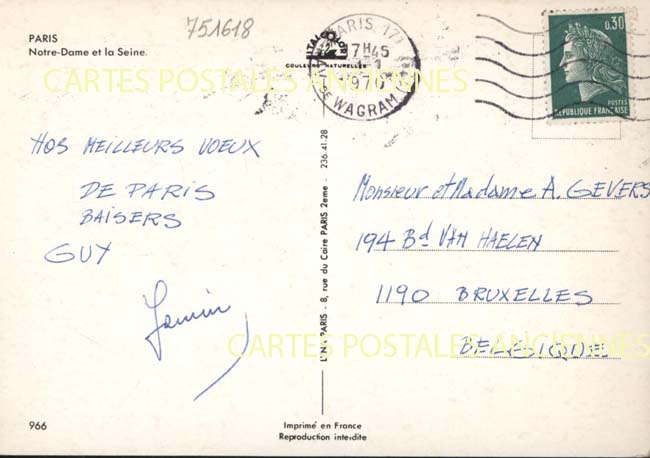 PARIS
Notre-Dame et la Seine.
751618
COULEURS NATURELLES
PARIS 17
7H45
1-1
1970
WAGRAM
0.30
POSTES
REPUBLIQUE FRANÇAISE
CARTES POSTALES ANCIENNES
NOS MEILLEURS VOEUX
DE PARIS
BAISERS
GUY
Monsieur et Madame A. GEVERS
194 Bd VAN HAELEN
1190 BRUXELLES
BELGIQUE
PARIS - 8, rue du Caire PARIS 2eme - 236.41.28
CARTES POSTALES ANCIENNES
966
Imprimé en France
Reproduction interdite